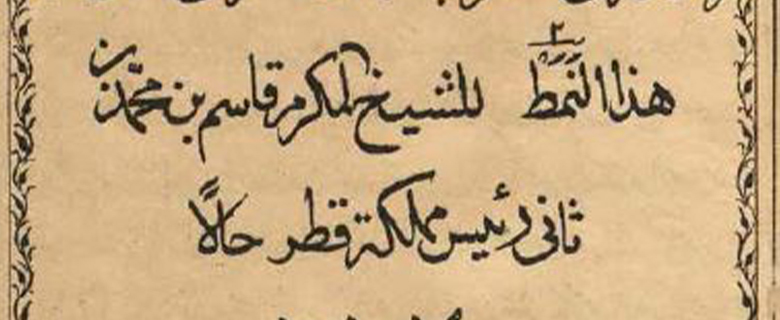 هذا النَّمَط ٢ للشيخ المكرم قاسم بن محمد بن
ثاني رئيس مملكة قطر حالاً